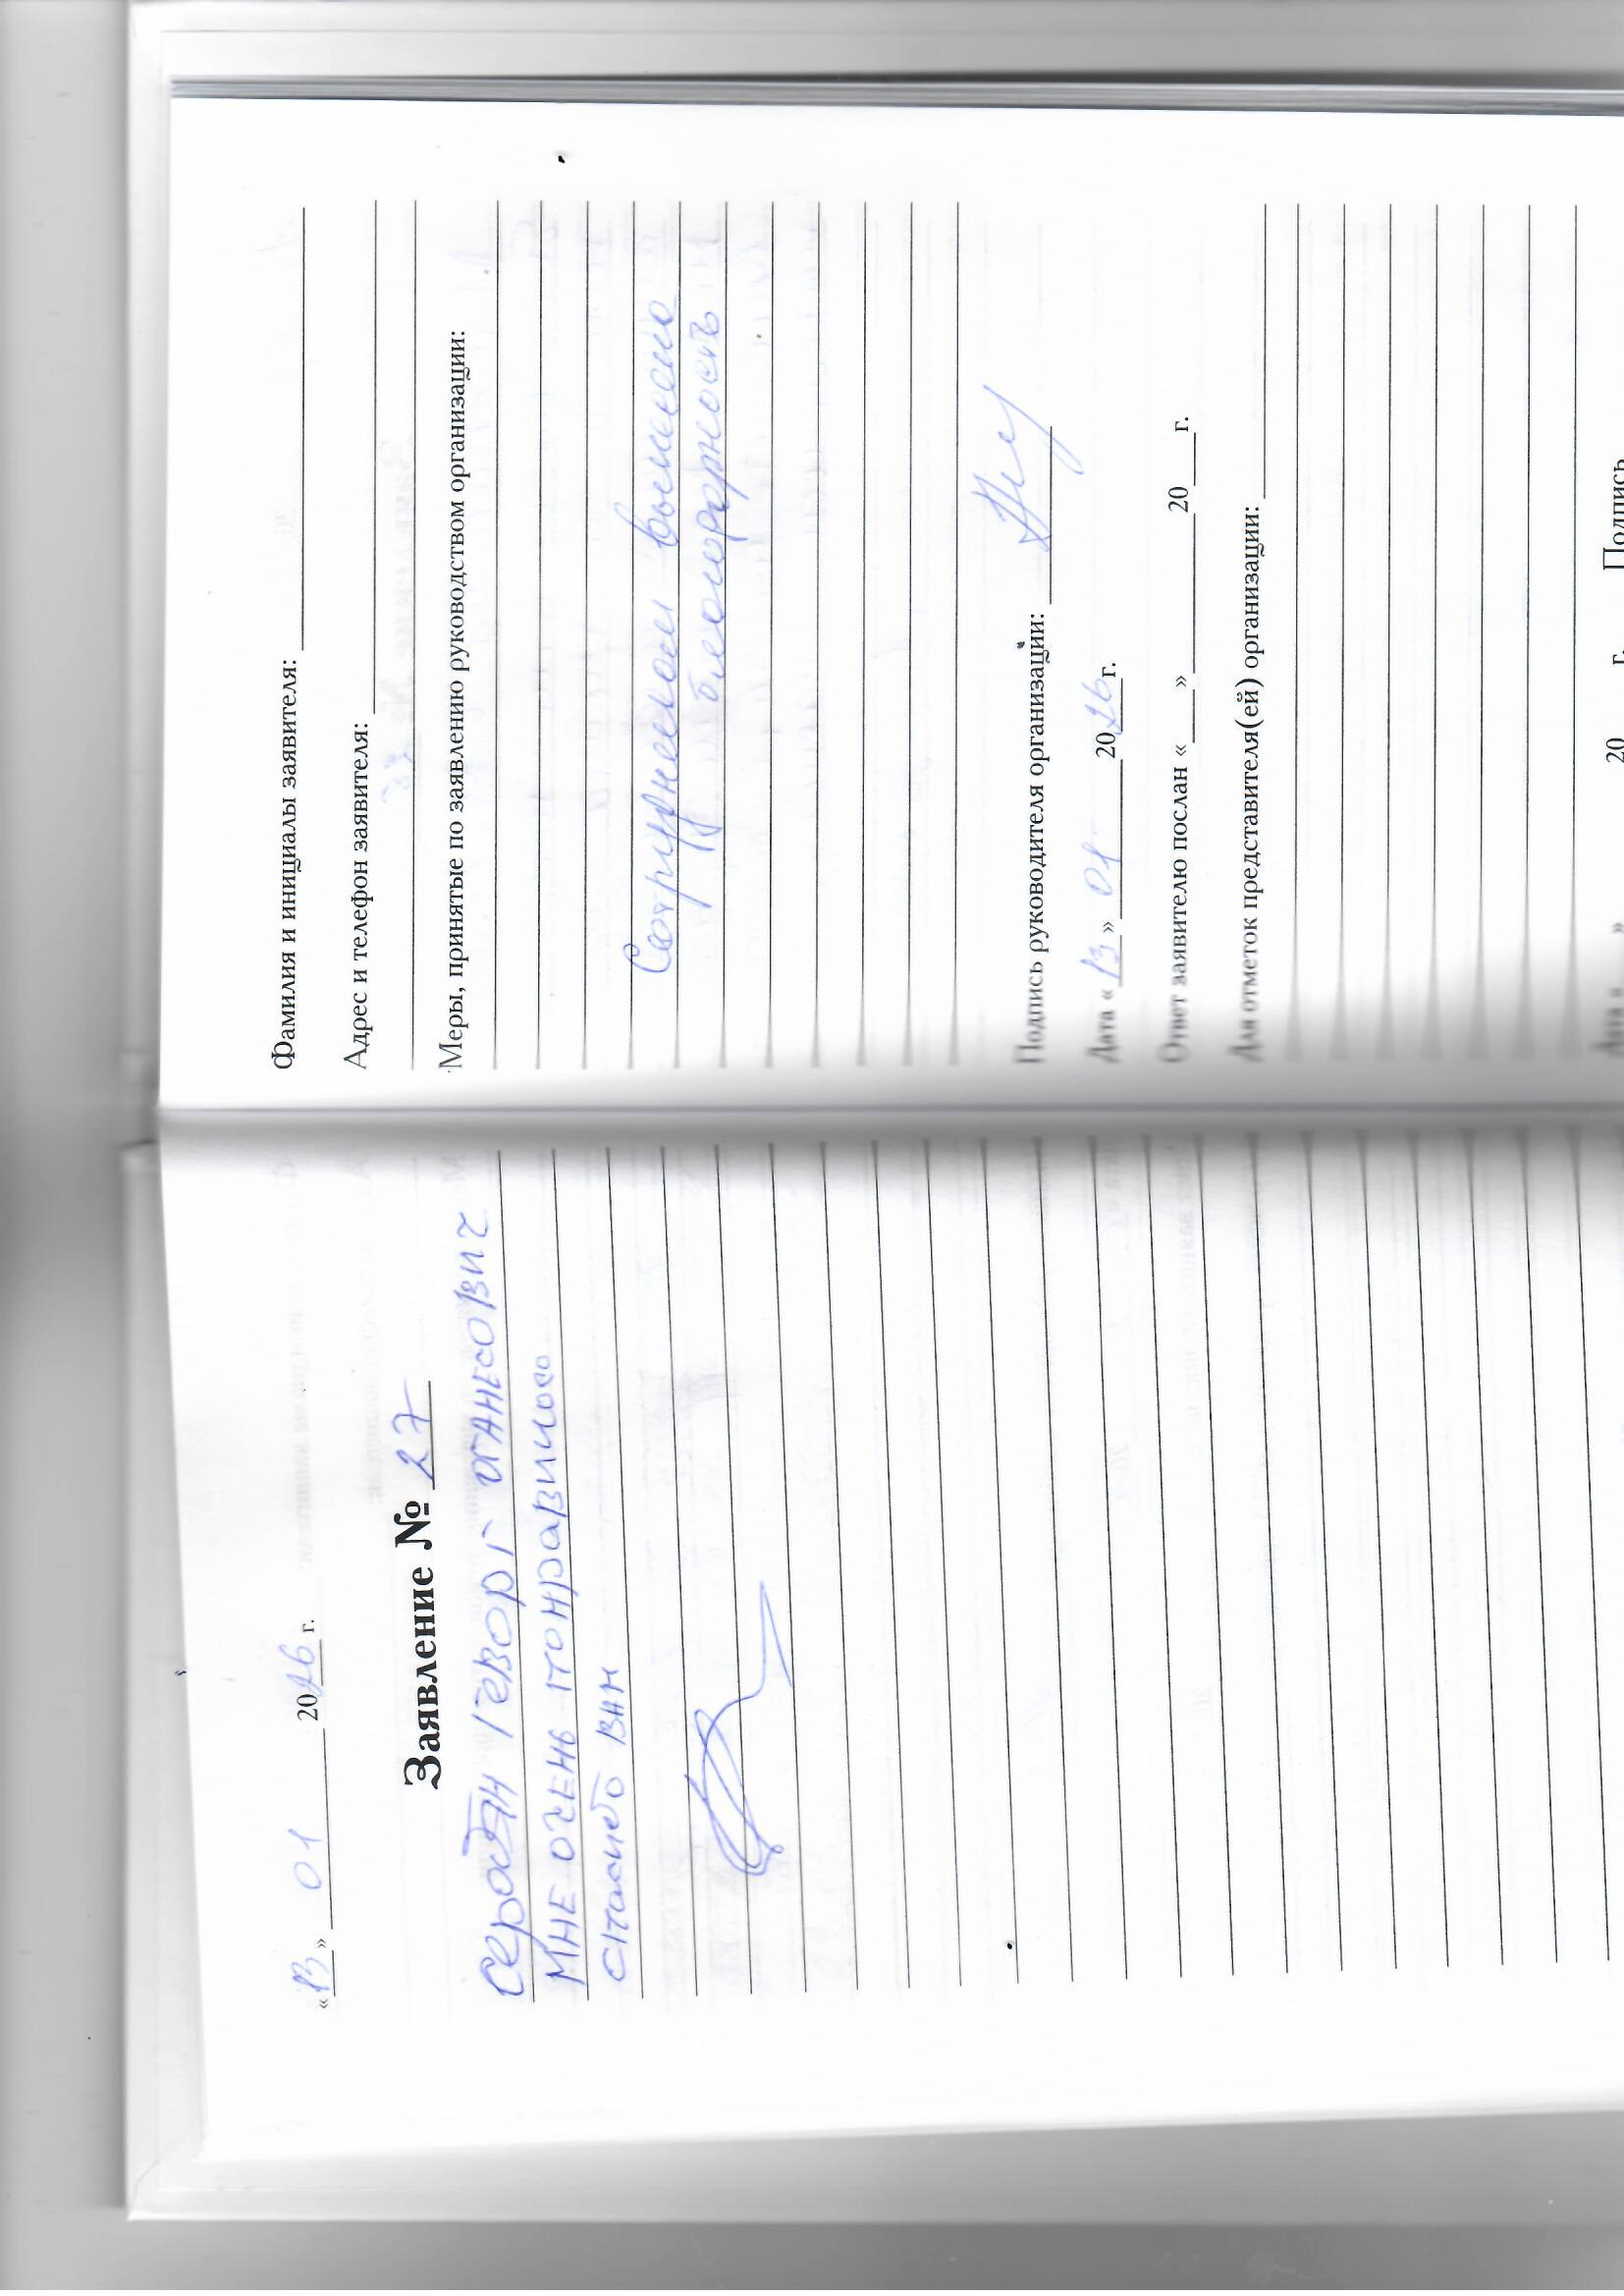 «13» 01 2026 г.
Заявление № 27
Серобян Геворг Оганесович
Мне очень понравилось
Спасибо вам
Фамилия и инициалы заявителя:
Адрес и телефон заявителя:
Меры, принятые по заявлению руководством организации:
Сотрудникам вынесена
благодарность
Подпись руководителя организации:
Дата «13» 01 2026 г.
Ответ заявителю послан «___» ______ 20___ г.
Для отметок представителя(ей) организации:
Дата « » 20 г. Подпись